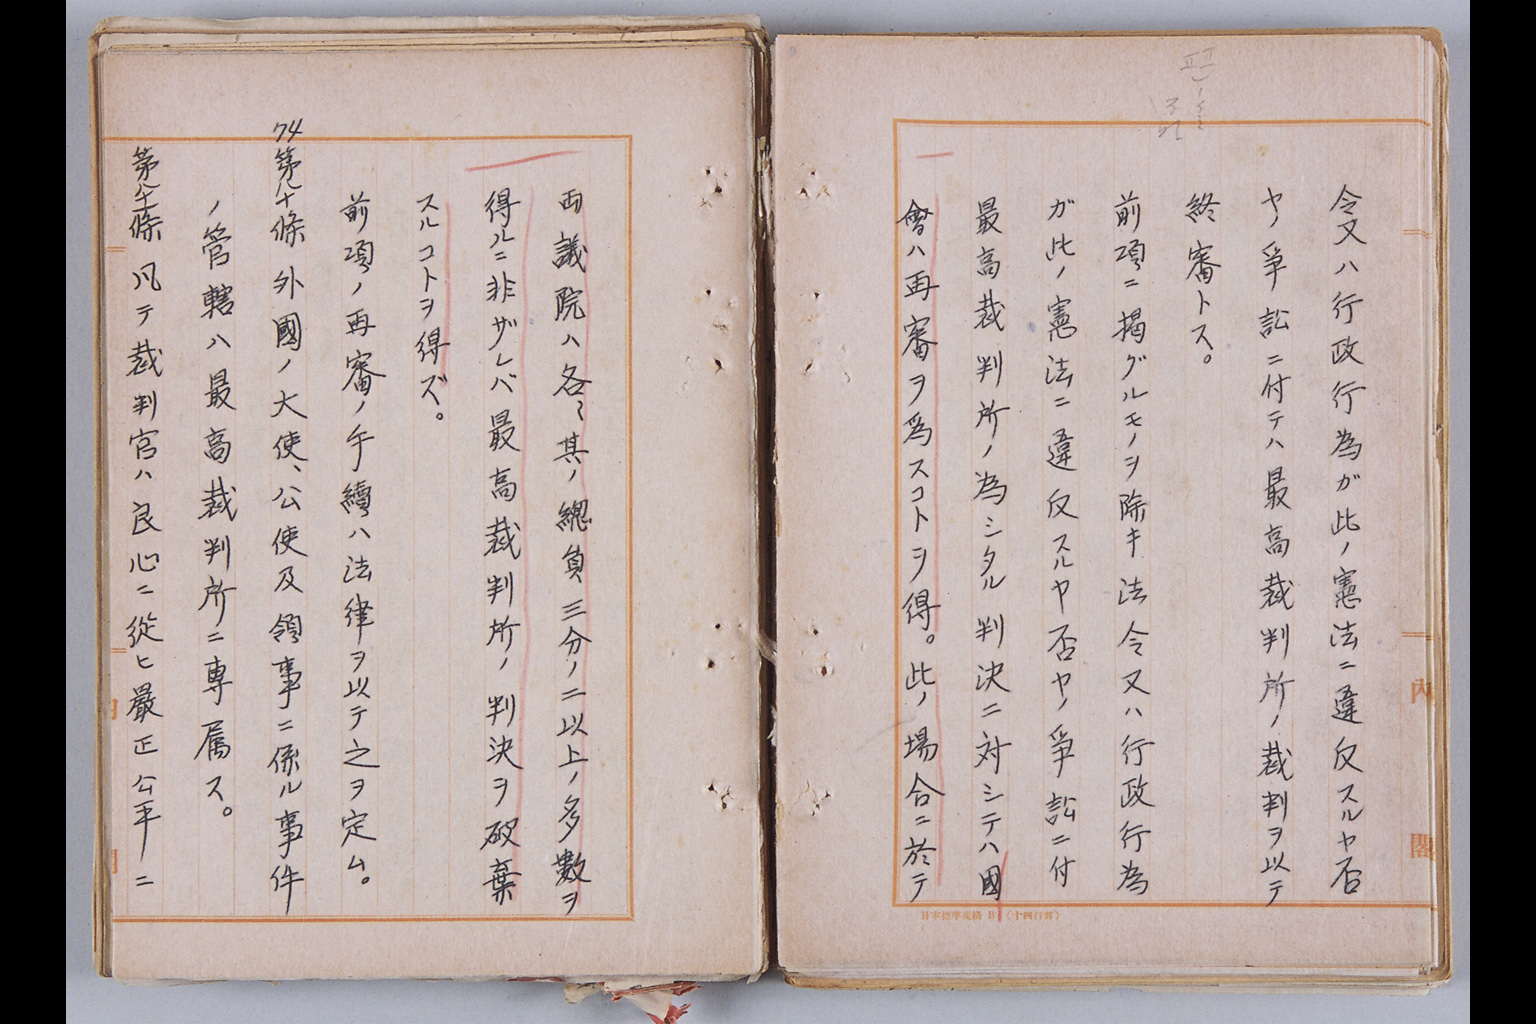 令又ハ行政行為ガ此ノ憲法ニ違反スルヤ否
ヤノ爭訟ニ付テハ最高裁判所ノ裁判ヲ以テ
終審トス。
前項ニ掲グルモノヲ除キ法令又ハ行政行為
ガ此ノ憲法ニ違反スルヤ否ヤノ爭訟ニ付
最高裁判所ノ為シタル判決ニ対シテハ國
會ハ再審ヲ為スコトヲ得。此ノ場合ニ於テ
内閣
日本標準規格
(十四行罫)
両議院ハ各〻其ノ總員三分ノ二以上ノ多數ヲ
得ルニ非ザレバ最高裁判所ノ判決ヲ破棄
スルコトヲ得ズ。
前項ノ再審ノ手續ハ法律ヲ以テ之ヲ定ム。
74第八十條 外國ノ大使、公使及領事ニ係ル事件
ノ管轄ハ最高裁判所ニ専属ス。
第八十一條 凡テ裁判官ハ良心ニ從ヒ嚴正公平ノニ